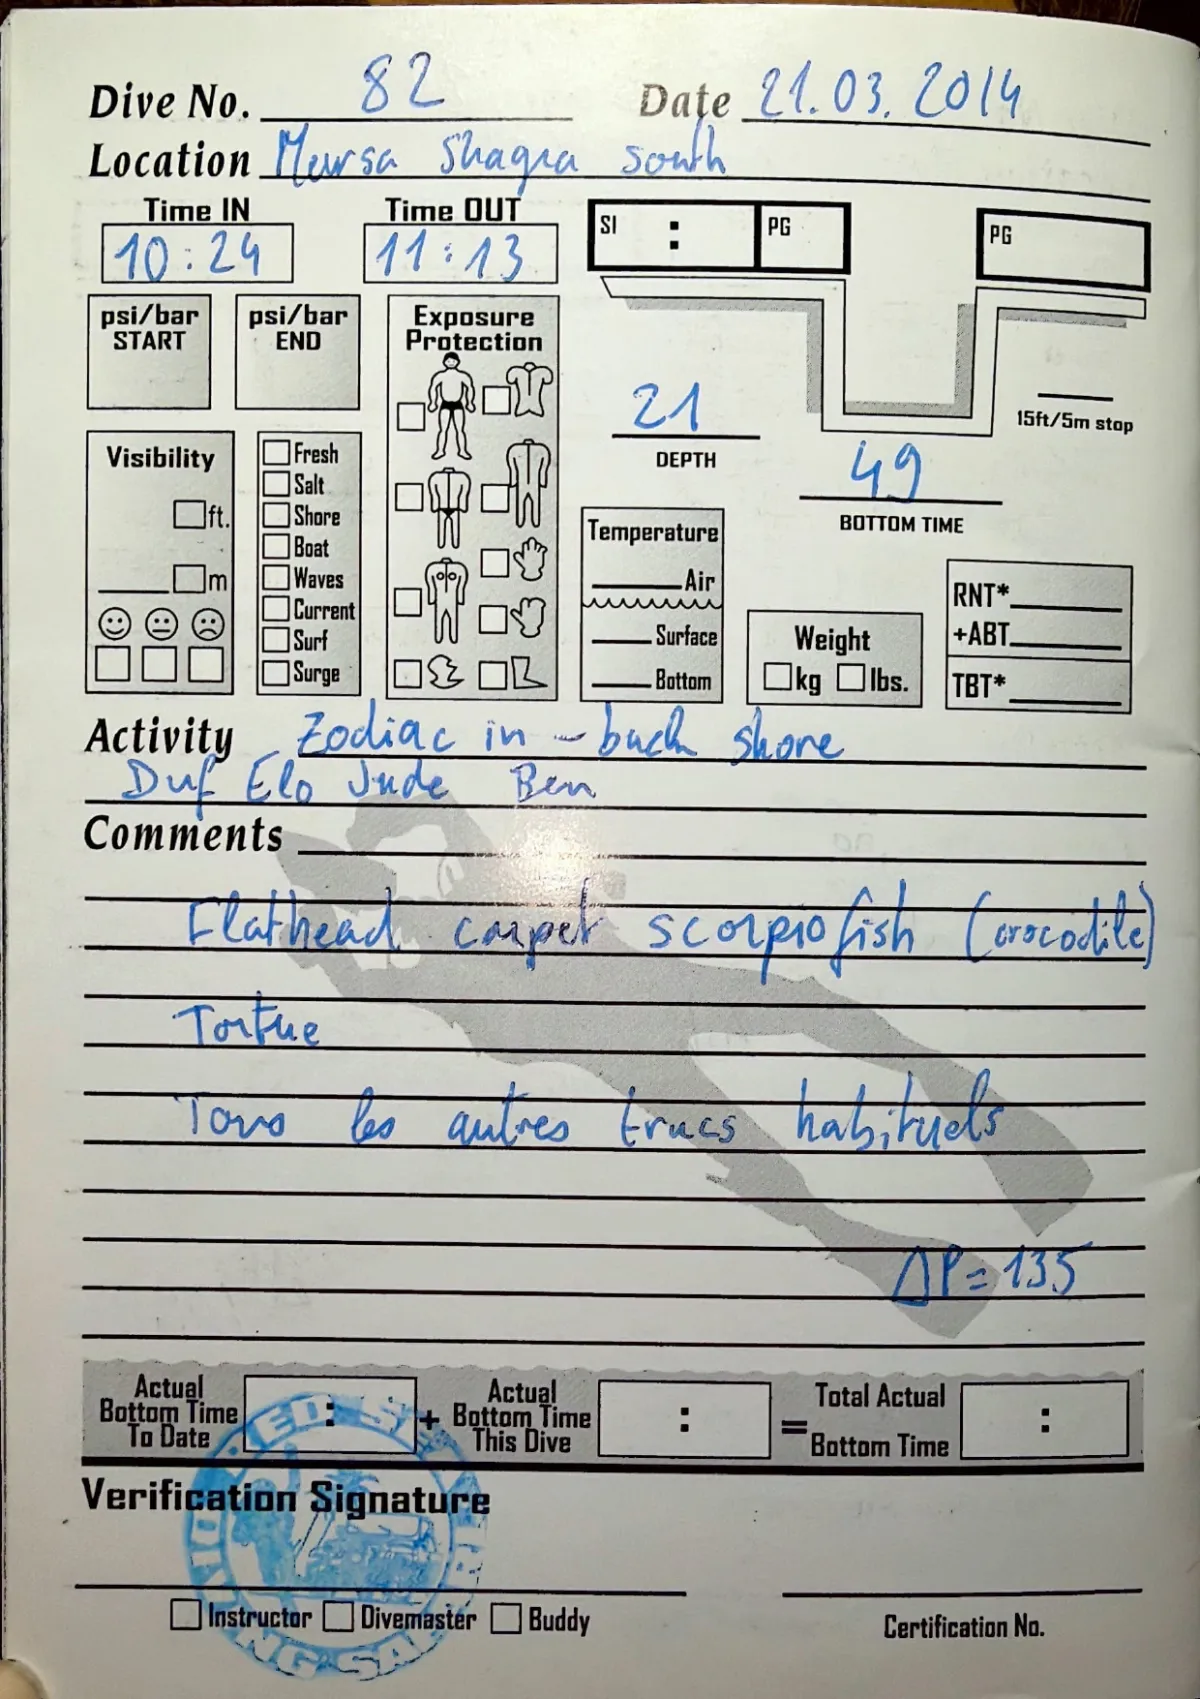 Dive No. 82 Date 21.03.2014
Location Marsa Shagra south
Time IN Time OUT
10:24 11:13
SI : PG PG
psi/bar START psi/bar END
Exposure Protection
21
DEPTH
15ft/5m stop
49
BOTTOM TIME
Visibility
ft.
m
Fresh
Salt
Shore
Boat
Waves
Current
Surf
Surge
Temperature
Air
Surface
Bottom
Weight
kg lbs.
RNT*
+ABT
TBT*
Activity Zodiac in - back shore
Duf Elo Jude Ben
Comments
Flathead carpet scorpiofish (crocodile)
Tortue
Tous les autres trucs habituels
ΔP = 135
Actual Bottom Time To Date : + Actual Bottom Time This Dive : = Total Actual Bottom Time :
Verification Signature
Instructor Divemaster Buddy
Certification No.